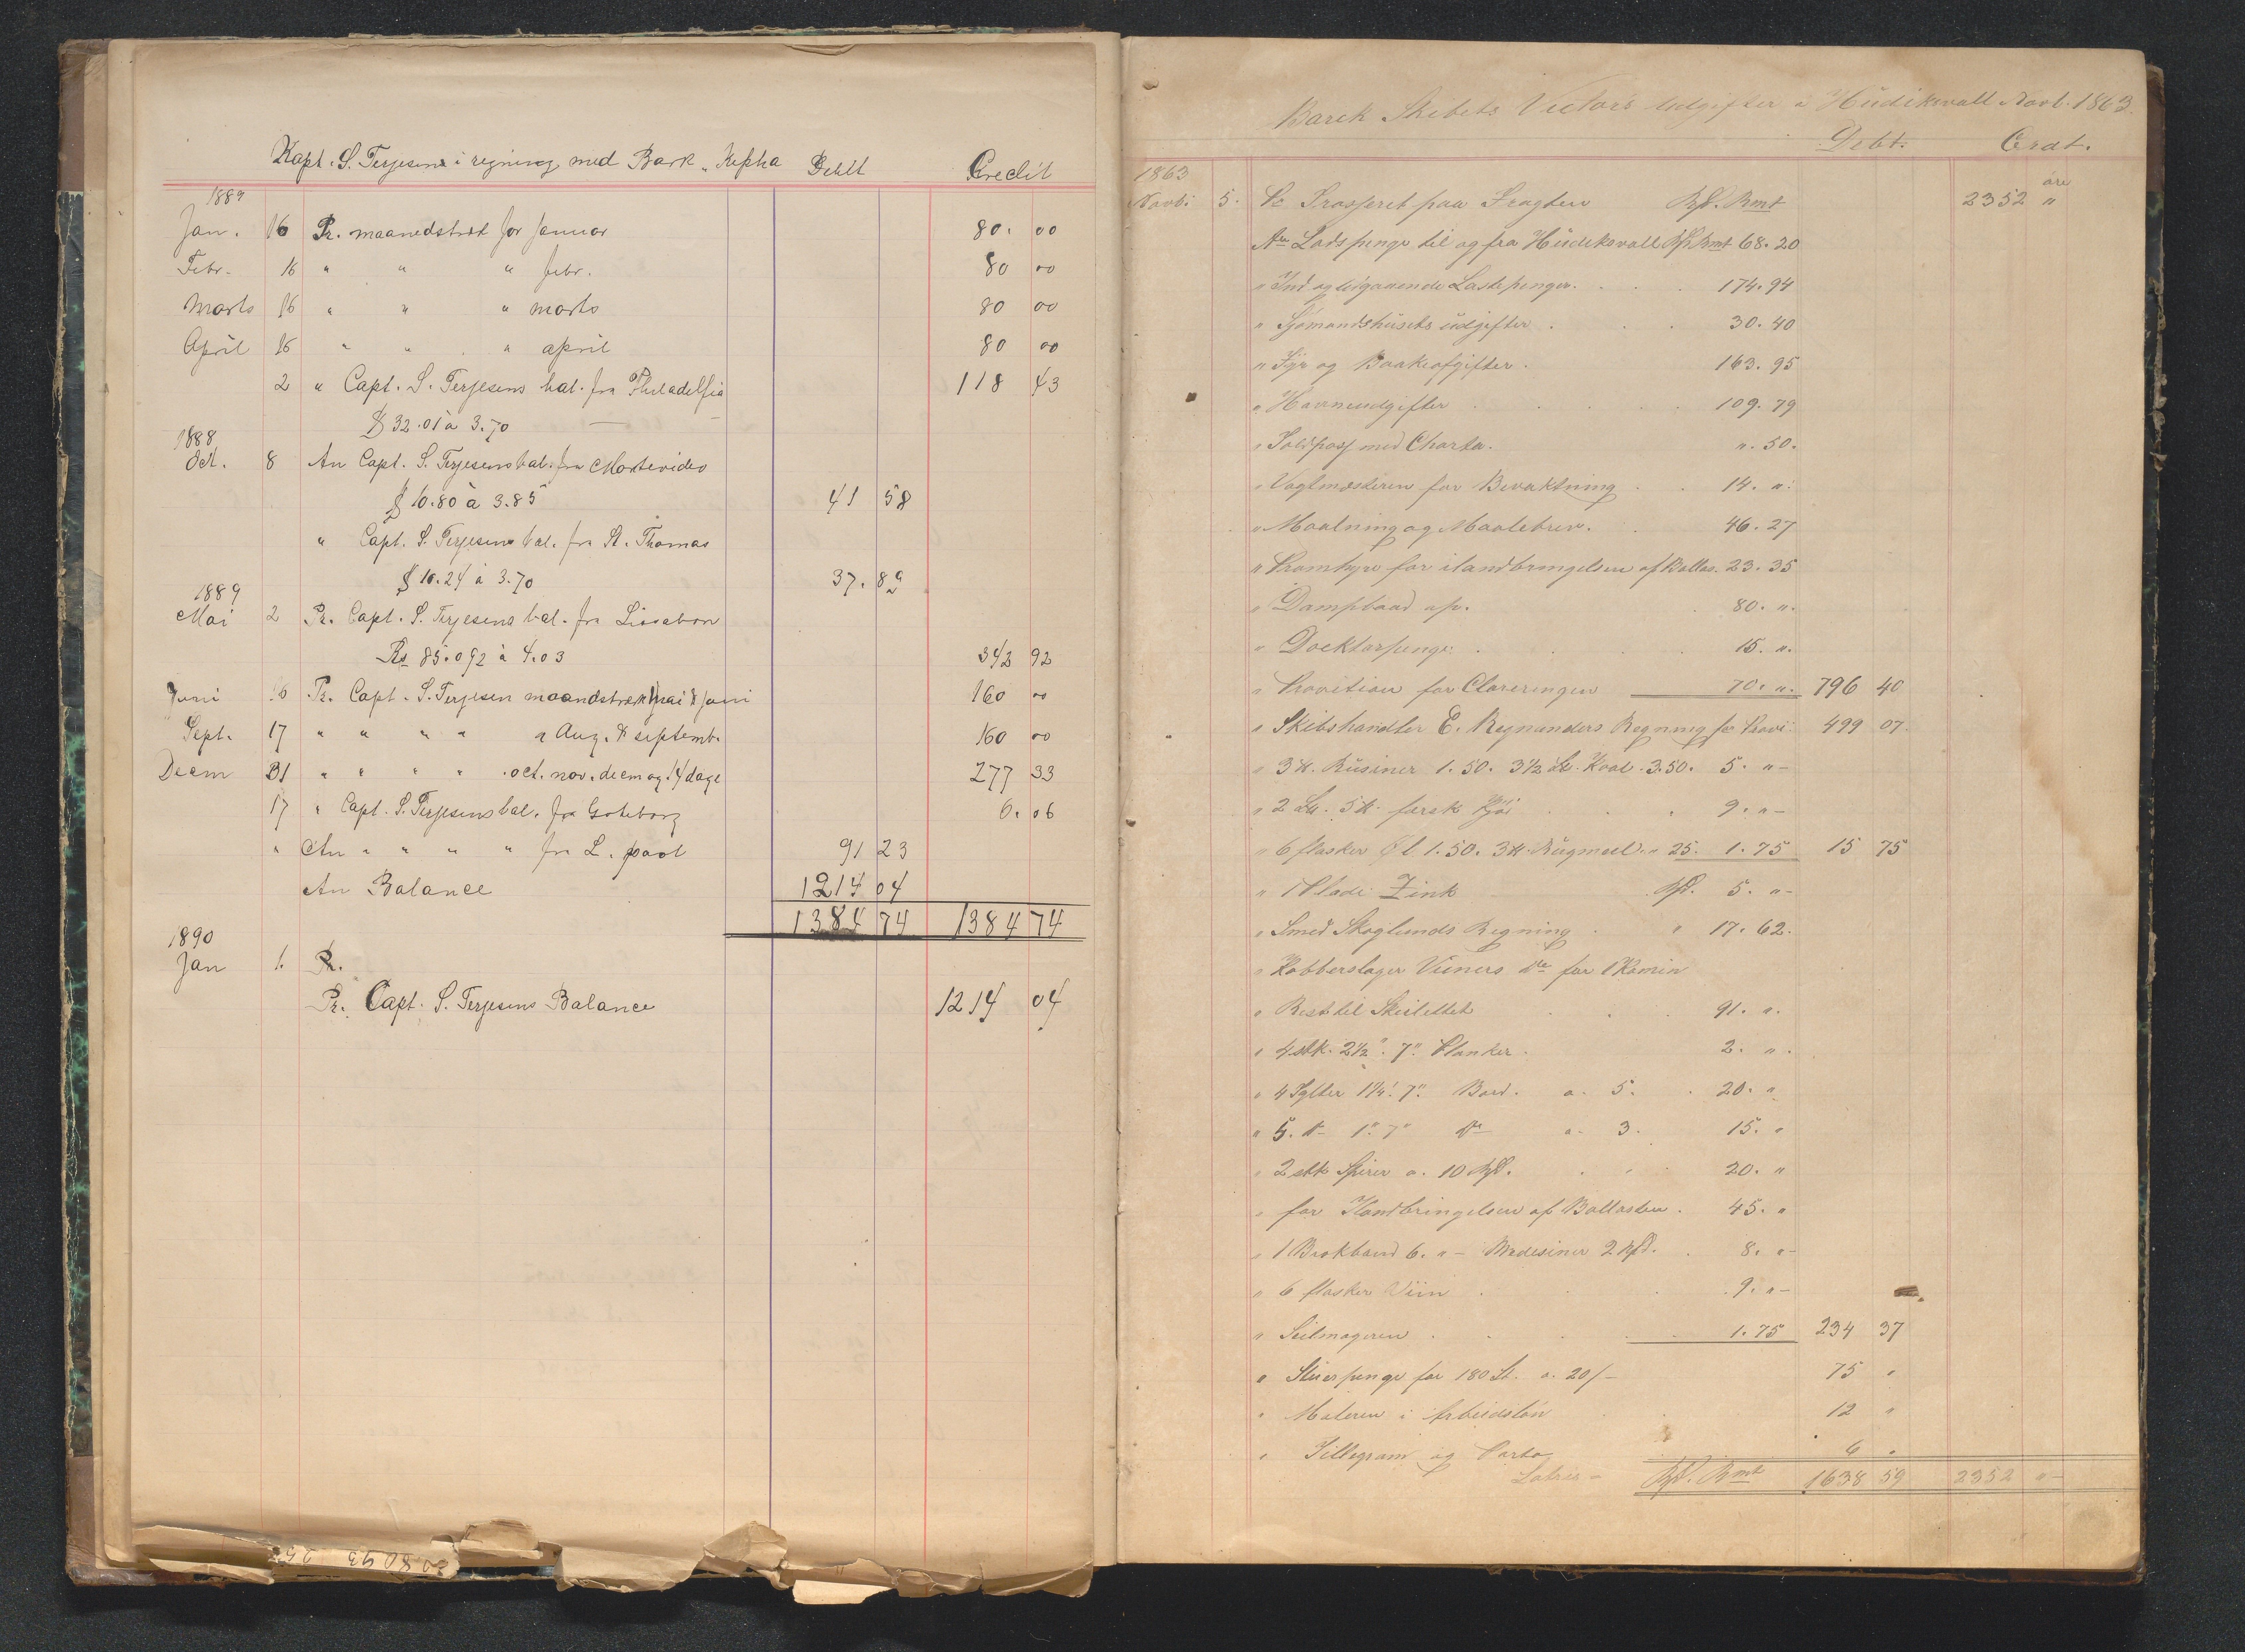 Kapt. S. Terjesens i regning med Bark „Kepha Debet Credit
1889
Jan. 16 Pr. maanedstræk for Januar 80. 00
Febr. 16 " " " febr. 80 00
Marts 16 " " " marts 80 00
April 16 " " " april 80 00
2 " Capt. S. Terjesens bal. fra Philadelfia 118 43
$ 32.01 à 3.70
1888
Oct. 8 An Capt. S. Terjesens bal. fra Montevideo
$ 10.80 à 3.85 41 58
" Capt. S. Terjesens bal. fra St. Thomas
$ 10.24 à 3.70 37.89
1889
Mai 2 Pr. Capt. S. Terjesens bal. fra Lissabon
Rs 85.092 à 4.03 342 92
Juni 16 Pr. Capt. S. Terjesen maandstræk mai & Juni 160 00
Sept. 17 " " " " " Aug. & septemb. 160 00
Decm 31 " " " " oct. nov. decm og 14 dage 277 33
17 " Capt. S. Terjesens bal. fra Goteborg 6.06
" An " " " " fra L. pool 91 23
An Balance 1214 04
1384 74 1384 74
1890
Jan 1. Pr.
Pr. Capt. S. Terjesens Balance 1214 04
Barck Skibets Victors Udgifter i Hudiksvall Novb. 1863.
Debt. Crdt.
1863
Novbr 5. Pr Trasseret paa Fragten Rd. Rmt 2352 öre "
An Lodspenge til og fra Hudiksvall Rd Rmt 68.20
" Ind og udgaaende Lastepenger. 174.94
" Sjømandshusets udgifter . 30.40
" Fyr og Baakeafgifter. 163.95
" Havneudgifter 109.79
" Toldpass med Charta. ". 50.
" Vagtmesteren for Bevaktning 14. "
" Maalning og Maalebrev. 46.27
" Pramhyre for ilandbringelsen af Ballas. 23.35
" Dampbaad op. 80. ".
" Docktorpenge. 15. ".
" Provition for Clareringen 70. ". 796 40
" Skibshandler E. Regnanders Regning for Provi: 499 07.
" 3 ℔. Rusiner 1.50. 3½ L℔. Kaal. 3.50. 5. "-
" 2 L℔. 5 ℔. fersk Kjöt 9. "-
" 6 flasker Øl 1.50. 3 ℔. Rugmeel. " 25. 1.75 15 75
" 1 Plade Zink Rd. 5. "-
" Smed Skoglunds Regning " 17.62.
" Kobberslager Viiners do for 1 Kamin
" Rest til Skilettet 91. ".
" 4 stk. 2½". 7". Planker. 2. ".
" 4 Tylter 1¼". 7". Bord. a. 5. 20. "
" 5. do 1". 7" do a. 3. 15. "
" 2 stk Spirer a. 10 Rd. 20. "
" for Ilandbringelsen af Ballasten. 45. "
" 1 Brokbaand 6. "- Medesiner 2 Rd. 8. "-
" 6 flasker Viin 9. "-
" Seilmageren 1.75 234 37
" Stuerpenge for 180 St. a. 20/- 75 "
" Maleren i Arbeidslön 12 "
" Tillegram og Porto 6 "
Latris - Rd. Rmt 1638 59 2352 "-